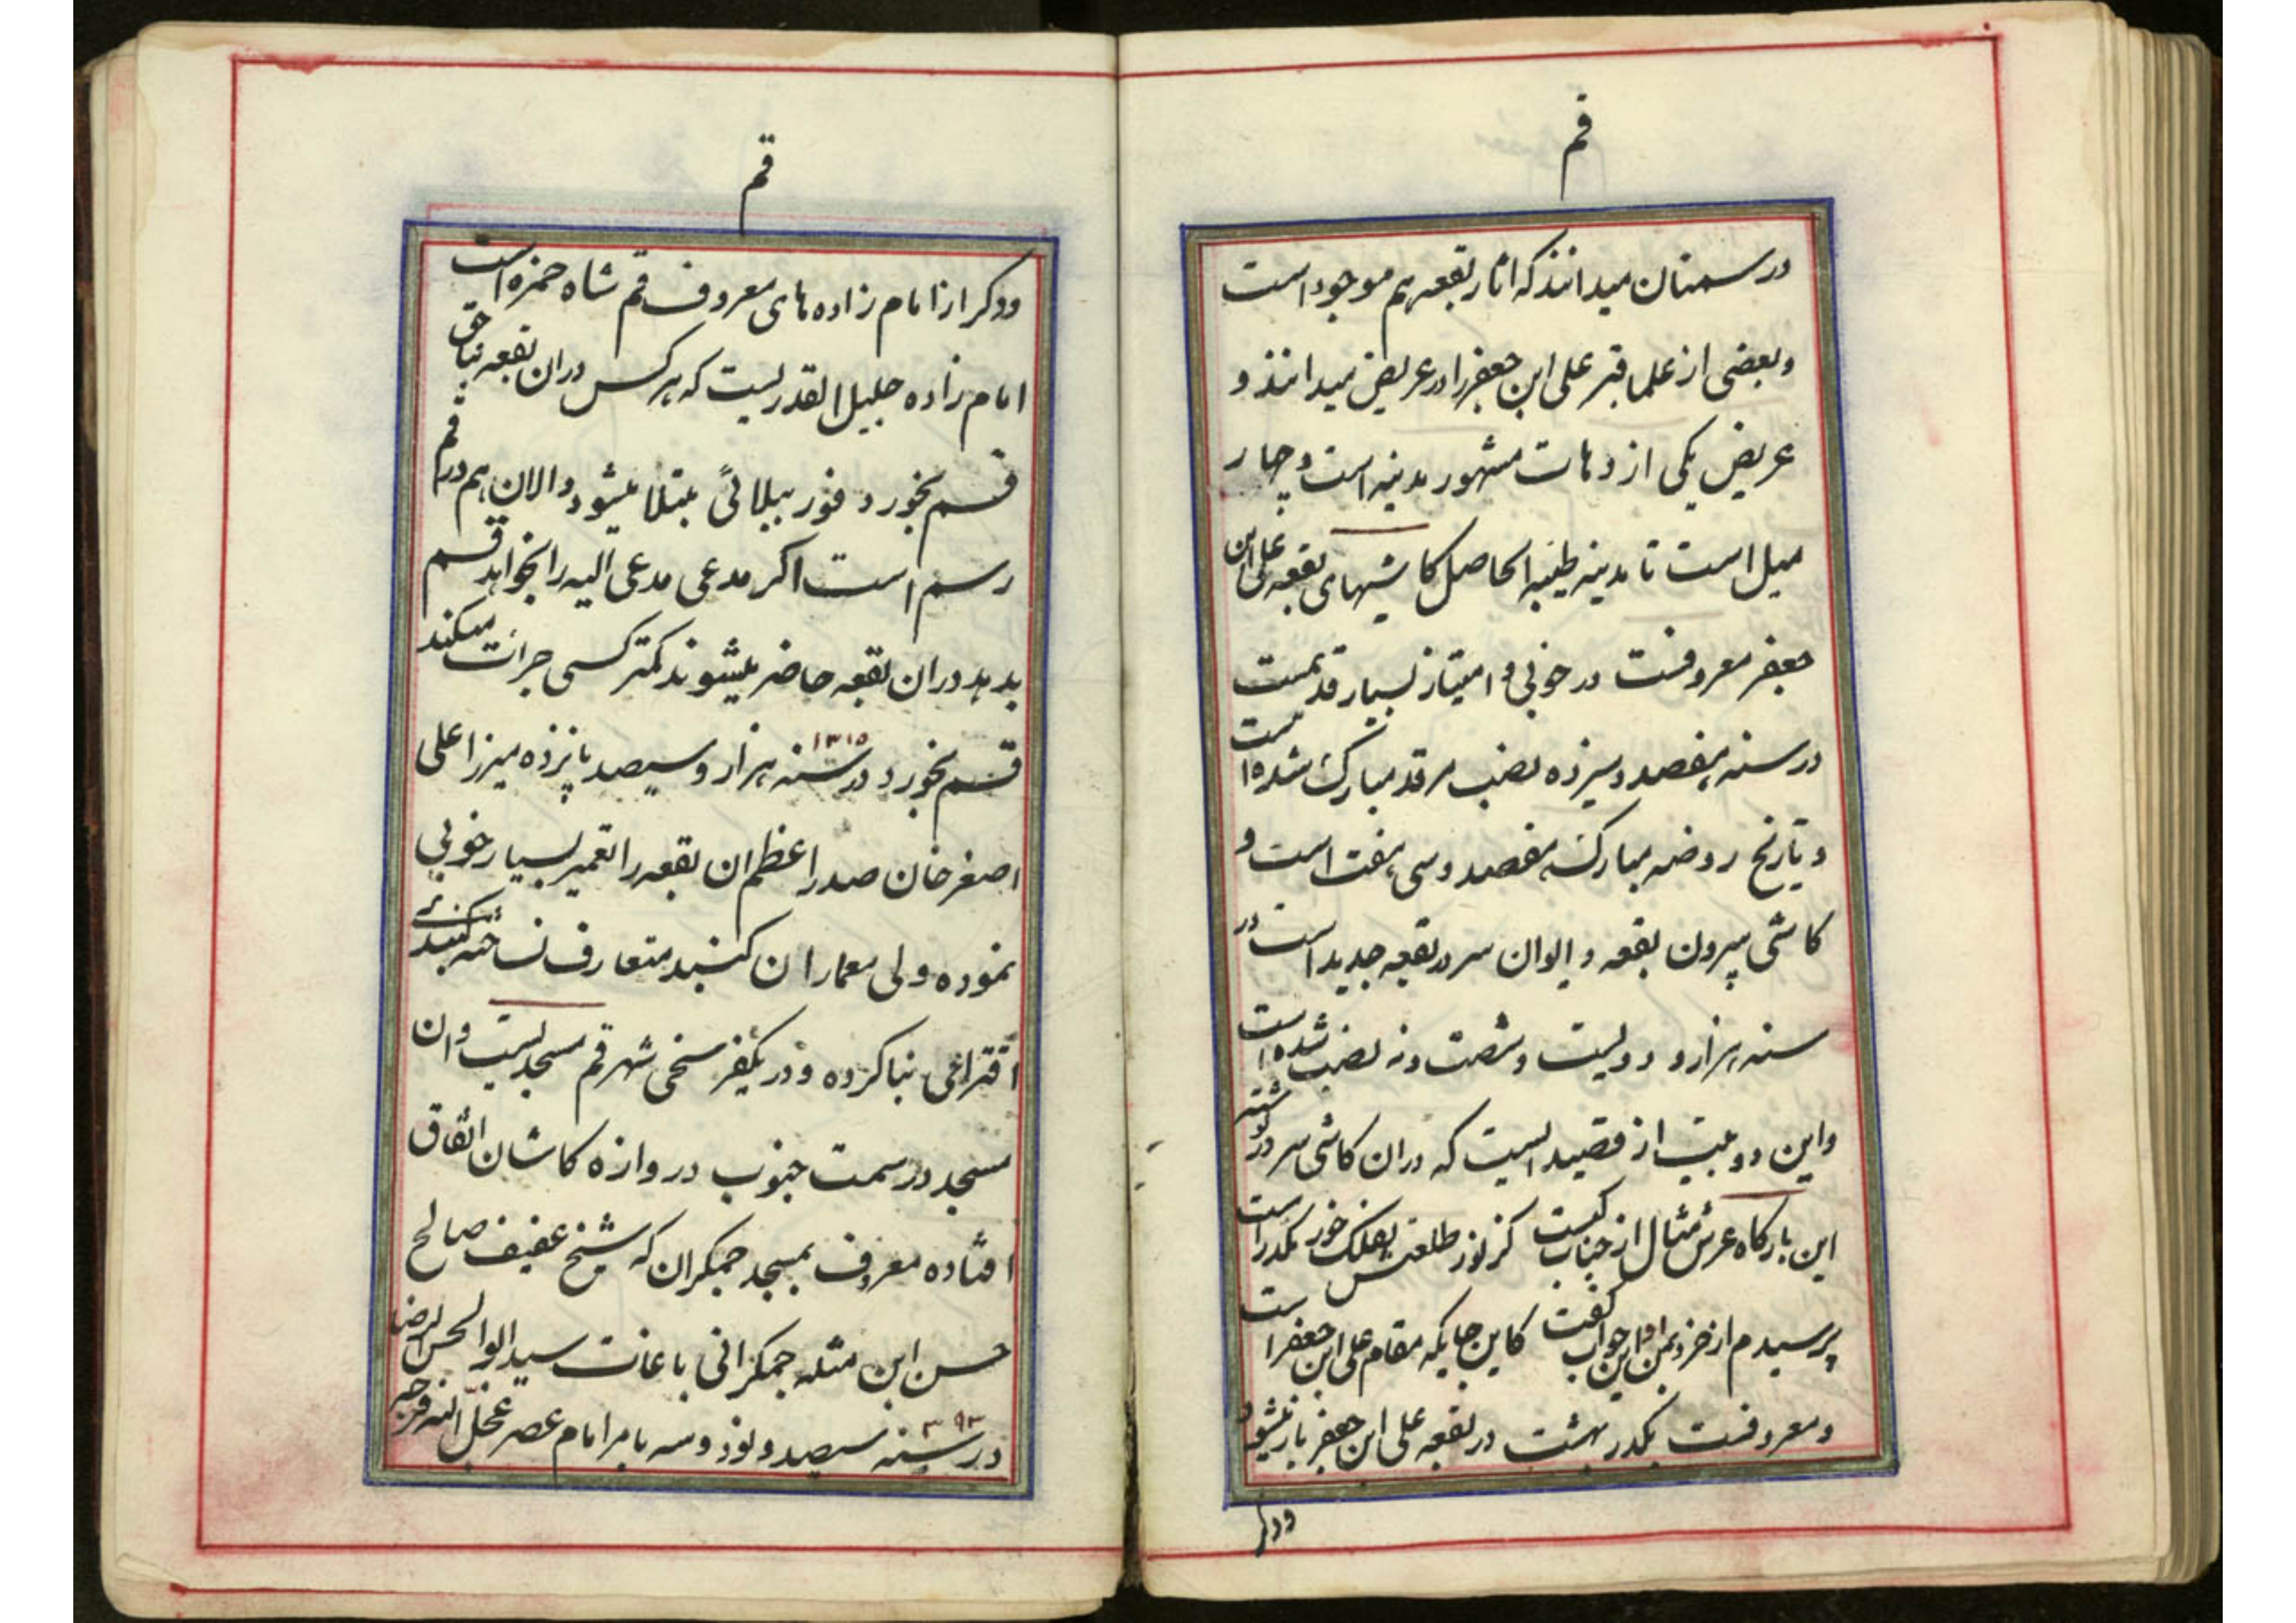 قم
در سمنان میدانند که اثار بقعه هم موجود است
و بعضی از علما قبر علی ابن جعفر را در عریض میدانند و
عریض یکی از دهات مشهور مدینه است و چهار
میل است تا مدینه طیبه الحاصل کاشیهای بقعه علی ابن
جعفر معروفست در خوبی و امتیاز بسیار قدیمست
در سنه هفصد و سیزده نصب مرقد مبارک شده است
و تاریخ روضه مبارکه هفصد و سی هفت است و
کاشی بیرون بقعه و ایوان سر در بقعه جدید است در
سنه هزار و دویست و شصت و نه نصب شده است
و این دو بیت از قصیده ایست که در ان کاشی سر در نوشته
این بارگاه عرش مثال از جناب کیست کز نور طلعتش بفلک خور مکدر است
پرسیدم از خرد بمن او این جواب گفت کاین جایگه مقام علی ابن جعفر است
و معروفست یکدر بهشت در بقعه علی ابن جعفر باز میشود
و دگر
قم
و دگر از امام زاده های معروف قم شاه حمزه است
امام زاده جلیل القدریست که هر کس در ان بقعه بناحق
قسم بخورد فورا ببلائی مبتلا میشود و الان هم در قم
رسم است اگر مدعی مدعی الیه را بخواهد قسم
بدهد در ان بقعه حاضر میشوند کمتر کسی جرات میکند
قسم بخورد در سنه هزار و سیصد پانزده ۱۳۱۵ میرزا علی
اصغر خان صدر اعظم ان بقعه را تعمیر بسیار خوبی
نموده ولی معمار ان گنبد متعارف نساخته گنبدی
اقتراحی بنا کرده و در یکفرسخی شهر قم مسجدیست و ان
مسجد در سمت جنوب دروازه کاشان اتفاق
افتاده معروف بمسجد جمکران که شیخ عفیف صالح
حسن ابن مثله جمکرانی باعانت سید ابوالحسن الرضا
در سنه سیصد و نود و سه ۳۹۳ بامر امام عصر عجل الله فرجه